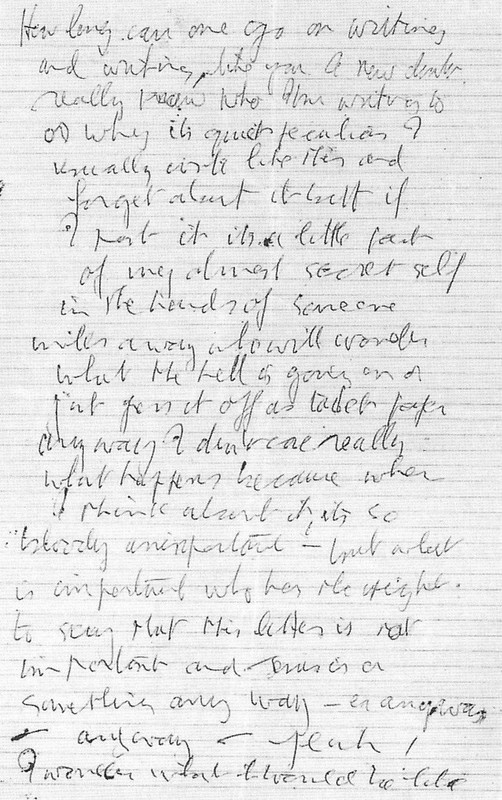 How long can one go on writing
and writing, like you I now don't
really know who I'm writing to
or why its quiet peculiar I
usually write like this and
forget about it but if
I post it its a little part
of my almost secret self
in the hands of someone
miles away who will wonder
what the hell is going on or
just pass it off as toilet paper
anyway I dont care really
what happens because when
I think about it, its so
bloody unimportant – but what
is important who has the right
to say that this letter is not
important and is
something anyway – er anyway
– anyway – yeah!
I wonder what it would be like